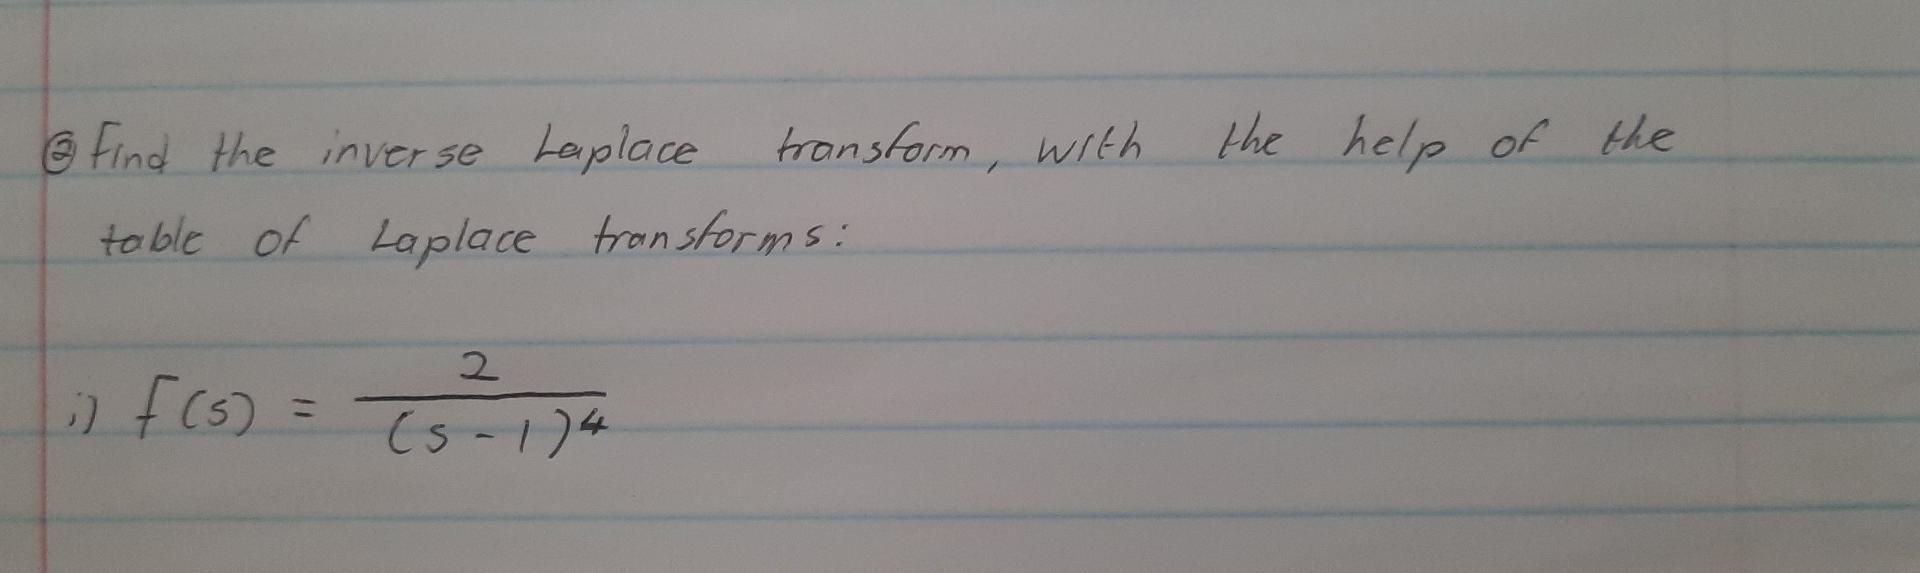 ② Find the inverse Laplace transform, with the help of the
table of Laplace transforms:
i) f(s) = 2 / (s - 1)^4